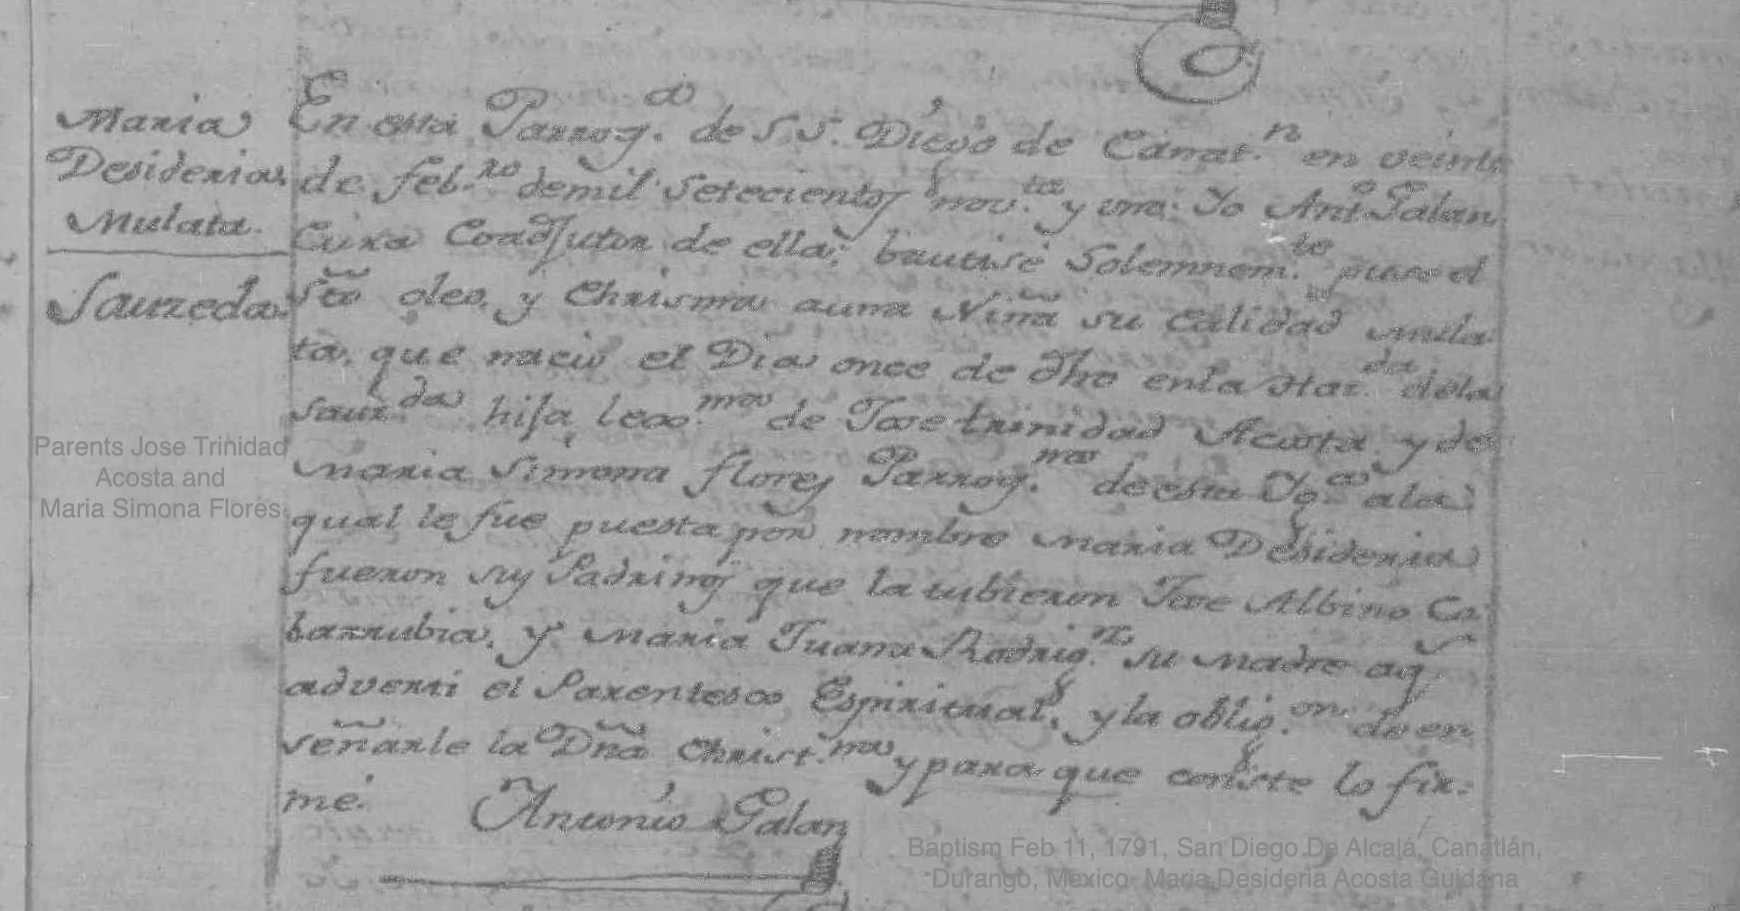 Maria
Desideria
Mulata.
Sauzeda.
En esta Parroq.a de S.S. Diego de Canat.n en veinte
de feb.ro de mil setecientos nov.ta y uno: Yo Ant.o Galan
Cura Coadjutor de ella; bautisé Solemnem.te puse el
Sto oleo, y Chrisma a una Niña su calidad mula
ta, que nacio el Dia once de dho en la Haz.da dela
Sauz.da hija leg.ma de Jose trinidad Acosta y de
Maria Simona flores Parroq.nos de esta Yg.a ala
qual le fue puesta por nombre Maria Desideria
fueron sus Padrinos que la tubieron Jose Albino Co
barrubia, y Maria Juana Rodrig.z su Madre aq.
adverti el Parentesco Espiritual, y la oblig.on de en
señarle la Dña Christ.na y para que conste lo fir:
mé.
Antonio Galan
Parents Jose Trinidad
Acosta and
Maria Simona Flores
Baptism Feb 11, 1791, San Diego De Alcalá, Canatlán,
Durango, Mexico- Maria Desideria Acosta Guidana